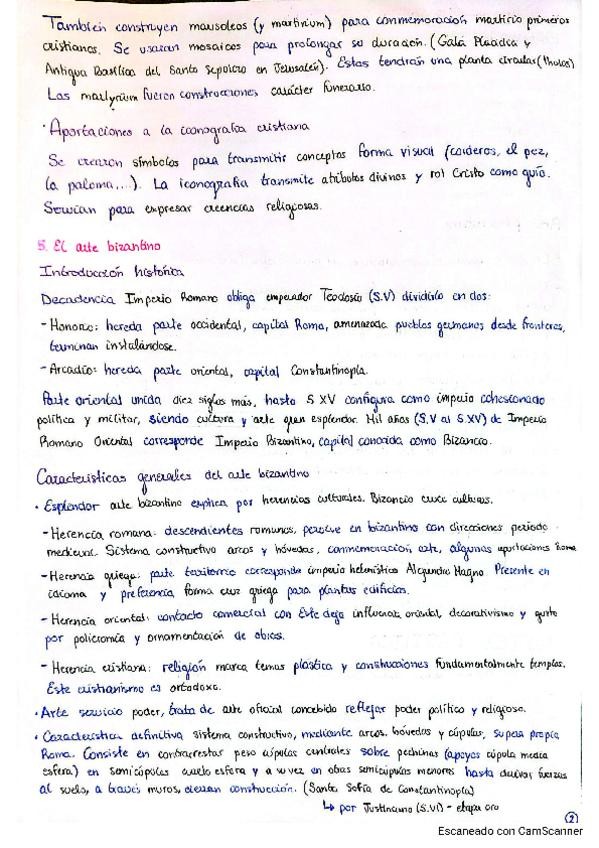 También construyen mausoleos (y martirium) para conmemoración martirio primeros
cristianos. Se usaran mosaicos para prolongar su duración. (Gala Placidia y
Antigua Basílica del Santo Sepolcro en Jerusalén). Estas tendrán una planta circular (tholos)
Las martyrium fueron construcciones carácter funerario.
· Aportaciones a la iconografía cristiana
Se crearon símbolos para transmitir conceptos forma visual (corderos, el pez,
la paloma,...). La iconografía transmite atributos divinos y rol Cristo como guía.
Servían para expresar creencias religiosas.
5. El arte bizantino
Introducción histórica
Decadencia Imperio Romano obliga emperador Teodosio (S.V) dividirlo en dos:
- Honorio: hereda parte occidental, capital Roma, amenazada pueblos germanos desde fronteras,
terminan instalándose.
- Arcadio: hereda parte oriental, capital Constantinopla.
Parte oriental unida diez siglos más, hasta S.XV configura como imperio cohesionado
política y militar, siendo cultura y arte gran esplendor. Mil años (S.V al S.XV) de Imperio
Romano Oriental corresponde Imperio Bizantino, capital conocida como Bizancio.
Características generales del arte bizantino
· Esplendor arte bizantino explica por herencias culturales. Bizancio cruce culturas.
- Herencia romana: descendientes romanos, pervive en bizantino con direcciones periodo
medieval. Sistema constructivo arcos y bóvedas, conmemoración arte, algunas aportaciones Roma
- Herencia griega: parte territorio corresponde imperio helenístico Alejandro Magno. Presente en
idioma y preferencia forma cruz griega para plantas edificios.
- Herencia oriental: contacto comercial con Este deja influencia oriental, decorativismo y gusto
por policromía y ornamentación de obras.
- Herencia cristiana: religión marca temas plástica y construcciones fundamentalmente templos.
Este cristianismo es ortodoxo.
· Arte servicio poder, trata de arte oficial concebido reflejar poder político y religioso.
· Característica definitiva sistema constructivo, mediante arcos, bóvedas y cúpulas, supera propia
Roma. Consiste en contrarrestar peso cúpulas centrales sobre pechinas (apoyos cúpula media
esfera) en semicúpulas cuarto esfera y a su vez en otras semicúpulas menores hasta derivar fuerzas
al suelo, a través muros, cierran construcción. (Santa Sofía de Constantinopla)
↳ por Justiniano (S.VI) - etapa oro
2
Escaneado con CamScanner